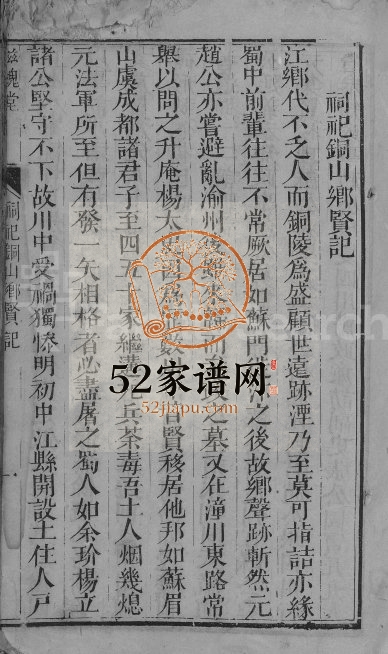 祠祀銅山鄉賢記
江鄉代不乏人而銅陵爲盛顧世遠跡湮乃至莫可指詰亦緣
蜀中前輩往往不常厥居如蘇門之後故鄉聲跡斬然元
趙公亦嘗避亂渝州後歸來之墓又在潼川東路常
舉以問之升庵楊太爲數昔賢移居他邦如蘇眉
山虞成都諸君子至四五十家繼兵荼毒吾土人烟幾熄
元法軍所至但有發一矢相格者必盡屠之蜀人如余玠楊立
諸公堅守不下故川中受禍獨慘明初中江縣開設土住人戸
滋槐堂
祠祀銅山鄉賢記
一
52家谱网
52jiapu.com